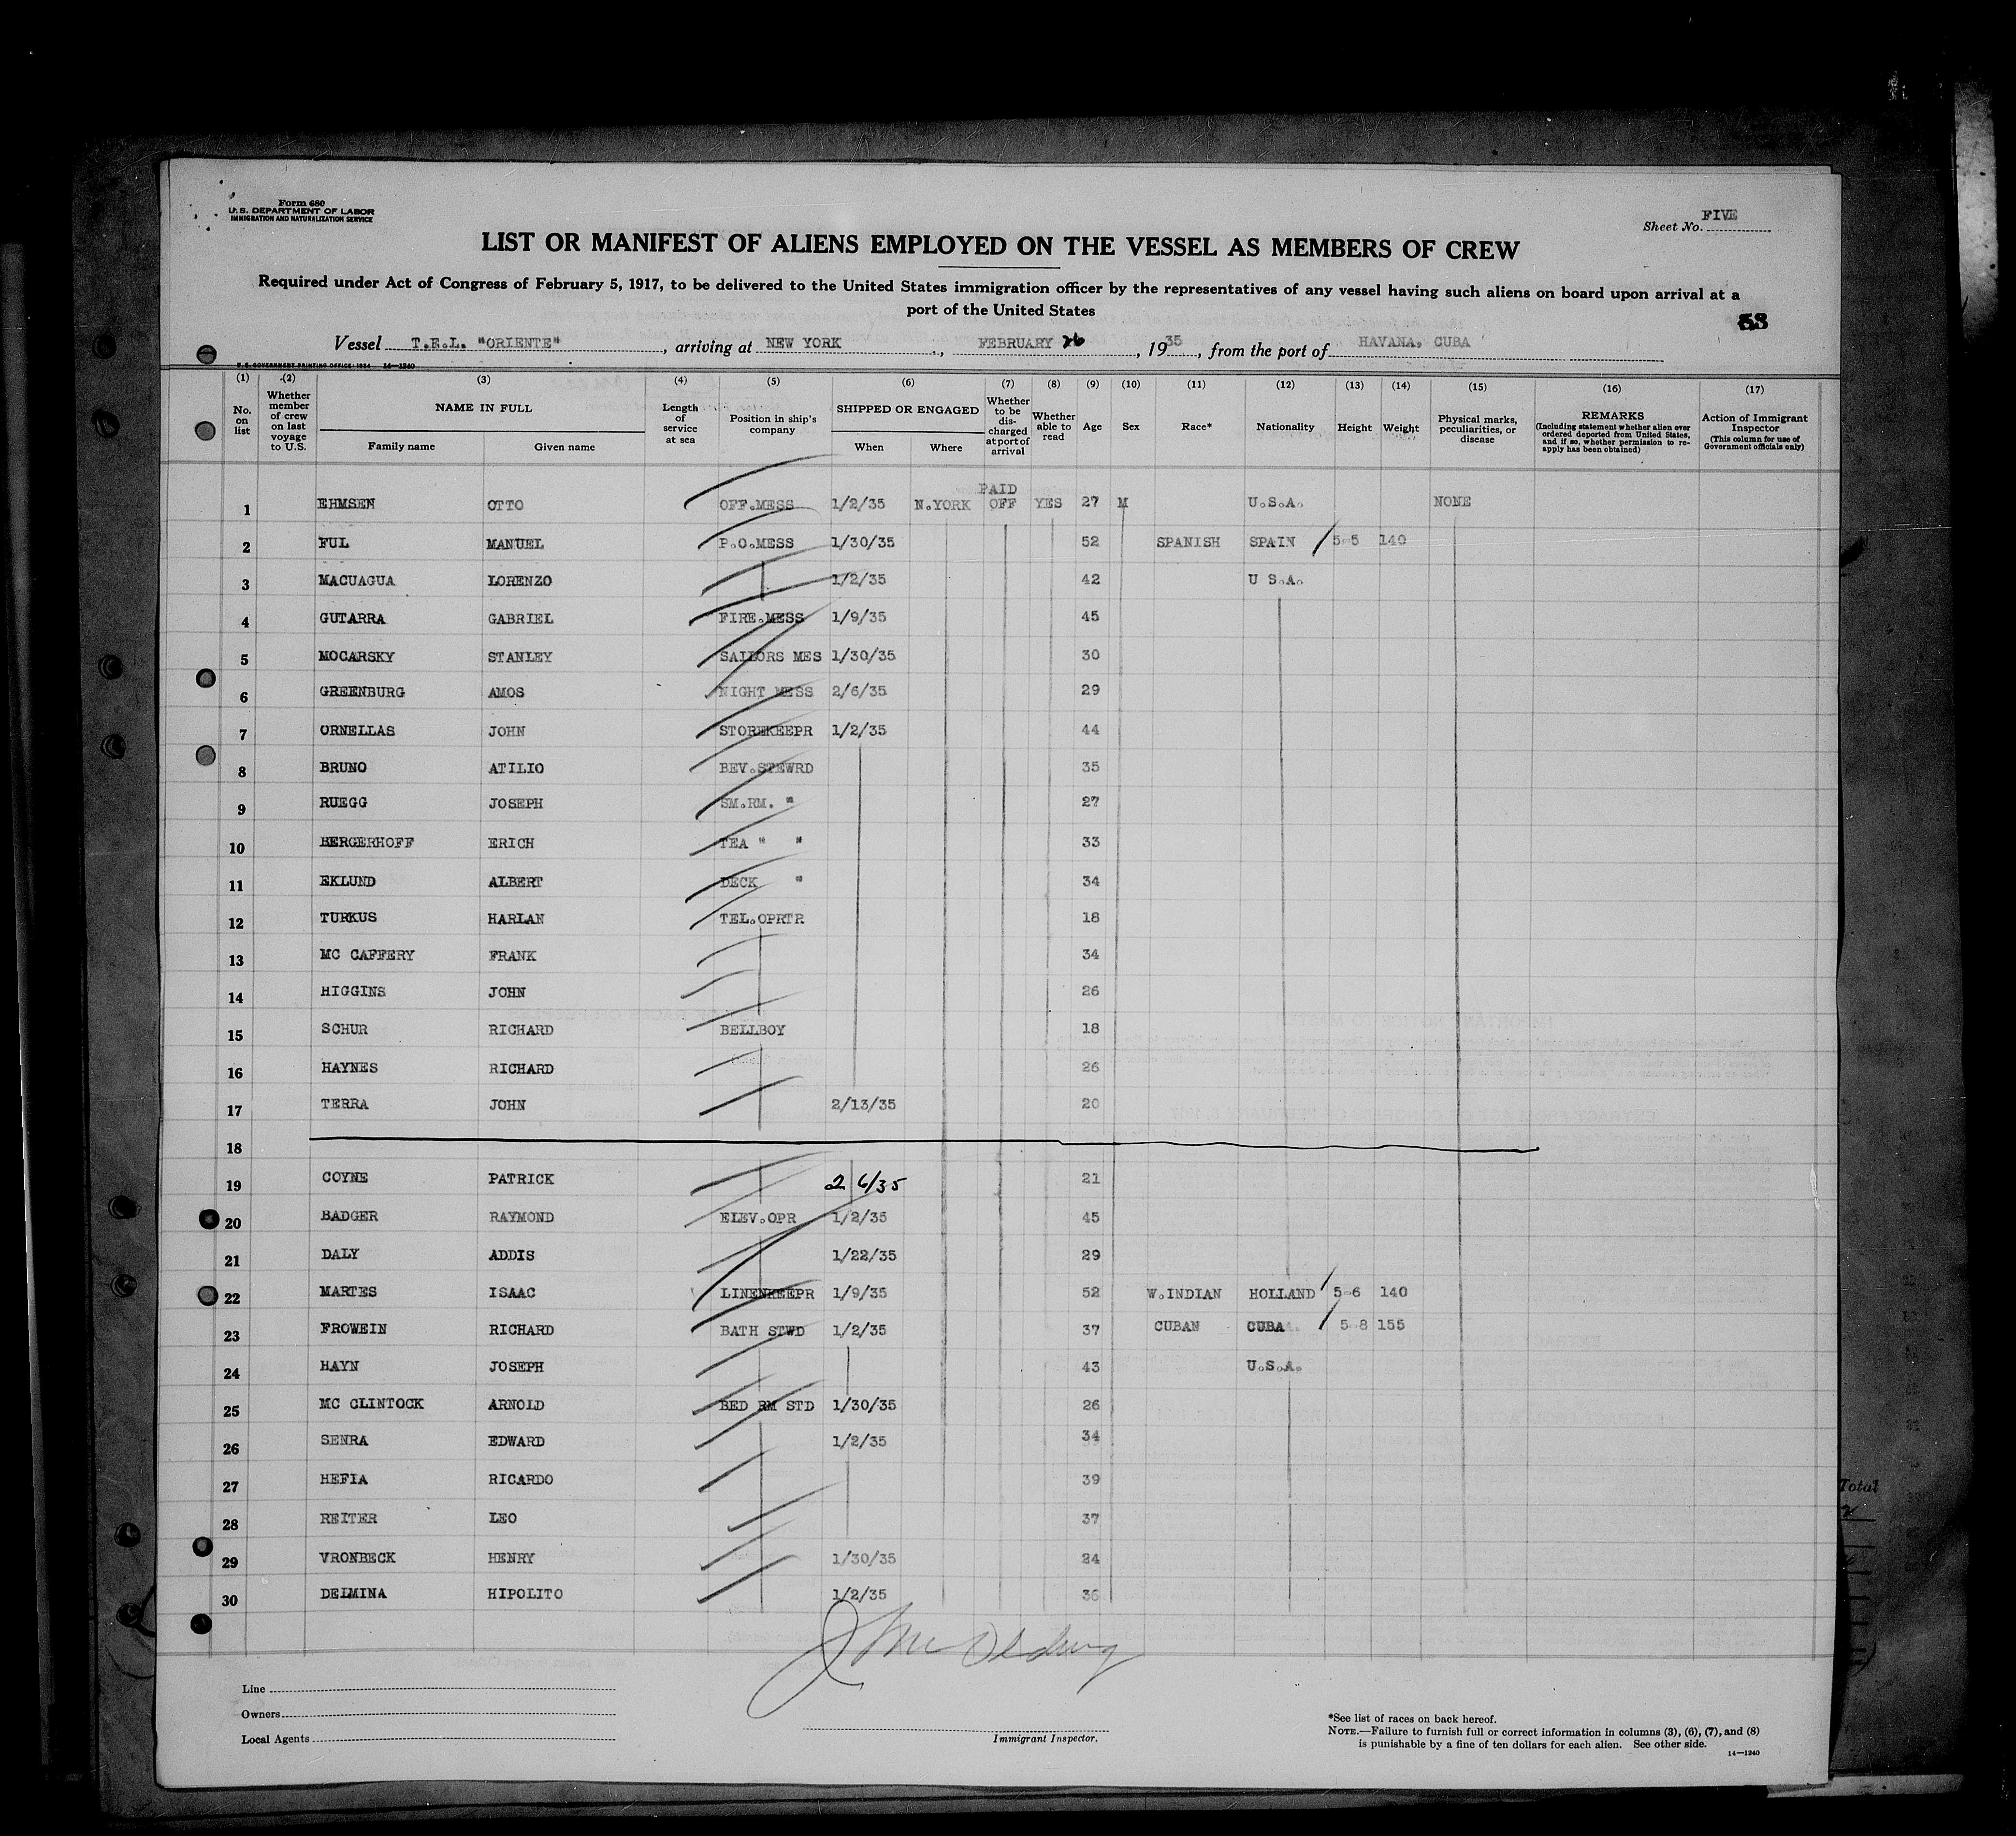 Form 680
U.S. DEPARTMENT OF LABOR
IMMIGRATION AND NATURALIZATION SERVICE
Sheet No. FIVE
LIST OR MANIFEST OF ALIENS EMPLOYED ON THE VESSEL AS MEMBERS OF CREW
Required under Act of Congress of February 5, 1917, to be delivered to the United States immigration officer by the representatives of any vessel having such aliens on board upon arrival at a
port of the United States
53
Vessel T.E.L. "ORIENTE", arriving at NEW YORK, FEBRUARY 26, 1935, from the port of HAVANA, CUBA
U.S. GOVERNMENT PRINTING OFFICE: 1934 14—1240
(1) (2) (3) (4) (5) (6) (7) (8) (9) (10) (11) (12) (13) (14) (15) (16) (17)
No. on list
Whether member of crew on last voyage to U.S.
NAME IN FULL
Family name Given name
Length of service at sea
Position in ship's company
SHIPPED OR ENGAGED
When Where
Whether to be discharged at port of arrival
Whether able to read
Age Sex Race* Nationality Height Weight
Physical marks, peculiarities, or disease
REMARKS
(Including statement whether alien ever ordered deported from United States, and if so, whether permission to re-apply has been obtained)
Action of Immigrant Inspector
(This column for use of Government officials only)
1 EHMSEN OTTO OFF.MESS 1/2/35 N.YORK PAID OFF YES 27 M U.S.A. NONE
2 FUL MANUEL P.O.MESS 1/30/35 52 SPANISH SPAIN 5-5 140
3 MACUAGUA LORENZO 1/2/35 42 U S.A.
4 GUTARRA GABRIEL FIRE.MESS 1/9/35 45
5 MOCARSKY STANLEY SAILORS MES 1/30/35 30
6 GREENBURG AMOS NIGHT MESS 2/6/35 29
7 ORNELLAS JOHN STOREKEEPR 1/2/35 44
8 BRUNO ATILIO BEV.STEWRD 35
9 RUEGG JOSEPH SM.RM. " 27
10 BERGERHOFF ERICH TEA " " 33
11 EKLUND ALBERT DECK " 34
12 TURKUS HARLAN TEL.OPRTR 18
13 MC CAFFERY FRANK 34
14 HIGGINS JOHN 26
15 SCHUR RICHARD BELLBOY 18
16 HAYNES RICHARD 26
17 TERRA JOHN 2/13/35 20
18
19 COYNE PATRICK 2 6/35 21
20 BADGER RAYMOND ELEV.OPR 1/2/35 45
21 DALY ADDIS 1/22/35 29
22 MARTES ISAAC LINENKEEPR 1/9/35 52 W.INDIAN HOLLAND 5-6 140
23 FROWEIN RICHARD BATH STWD 1/2/35 37 CUBAN CUBA 5-8 155
24 HAYN JOSEPH 43 U.S.A.
25 MC CLINTOCK ARNOLD BED RM STD 1/30/35 26
26 SENRA EDWARD 1/2/35 34
27 HEFIA RICARDO 39
28 REITER LEO 37
29 VRONBECK HENRY 1/30/35 24
30 DELMINA HIPOLITO 1/2/35 36
Line
Owners
Local Agents
Immigrant Inspector.
*See list of races on back hereof.
NOTE.—Failure to furnish full or correct information in columns (3), (6), (7), and (8)
is punishable by a fine of ten dollars for each alien. See other side.
14—1240
Total